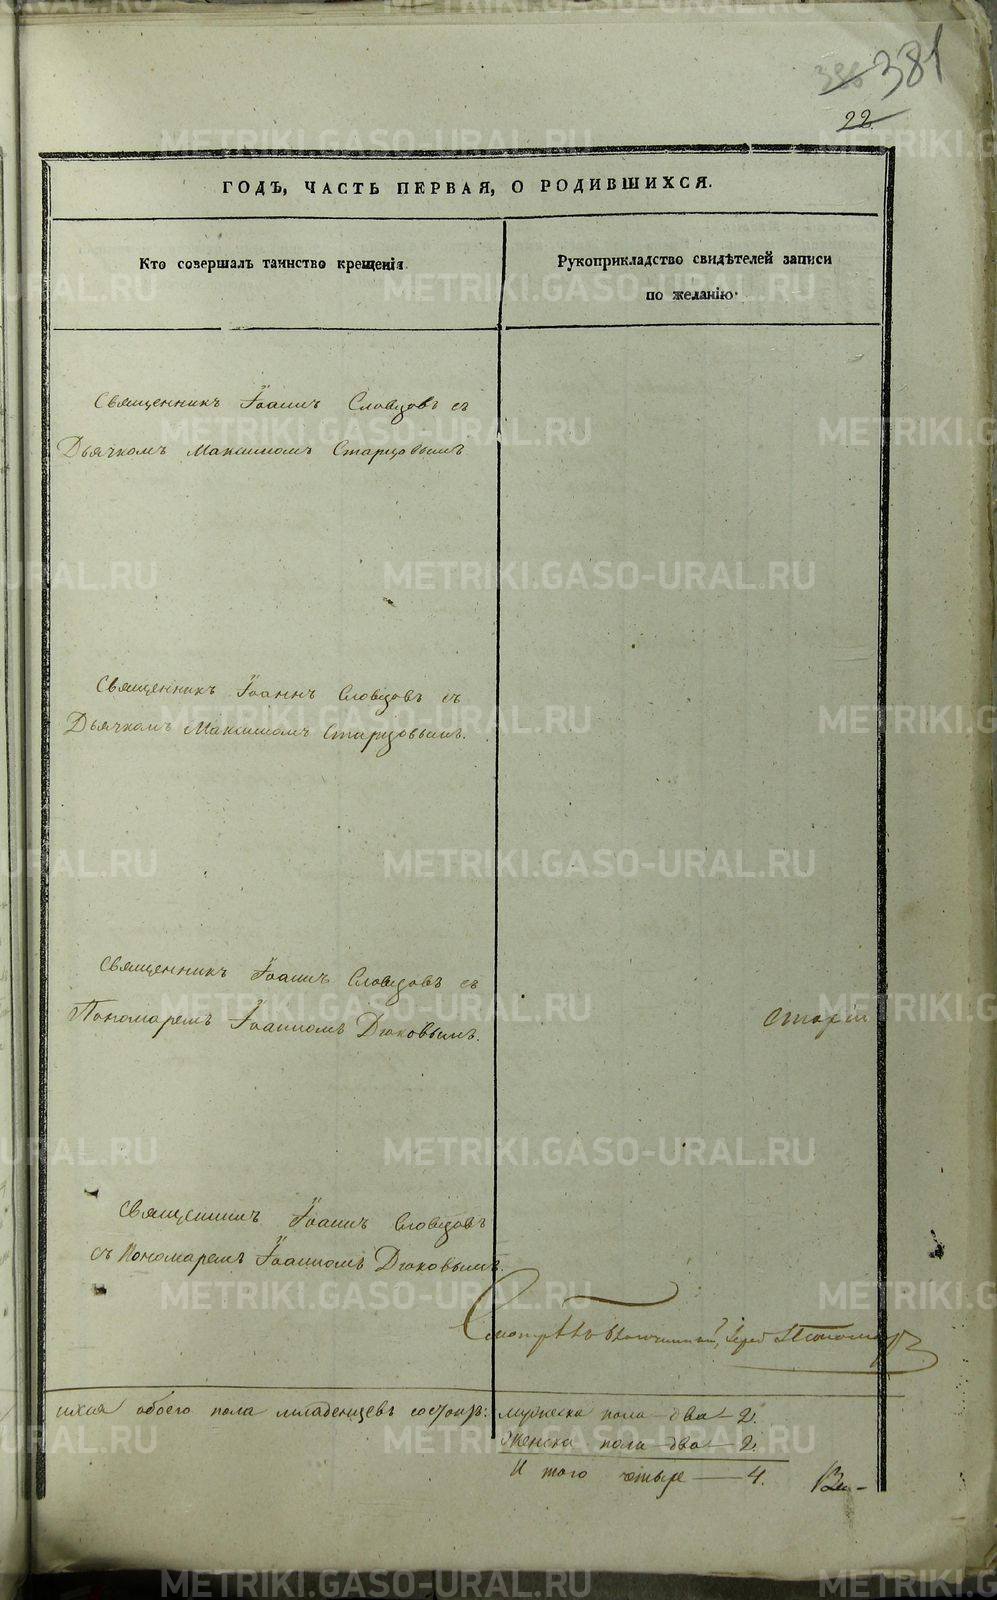 386 381
22.
ГОДЪ, ЧАСТЬ ПЕРВАЯ, О РОДИВШИХСЯ.
Кто совершалъ таинство крещенія.
Рукоприкладство свидѣтелей записи
по желанію.
Священникъ Іоаннъ Словцовъ съ
Дьячкомъ Максимомъ Старцовымъ
Священникъ Іоаннъ Словцовъ съ
Дьячкомъ Максимомъ Старцовымъ.
Священникъ Іоаннъ Словцовъ съ
Пономаремъ Іоанномъ Дюковымъ.
Священникъ Іоаннъ Словцовъ
съ Пономаремъ Іоанномъ Дюковымъ.
Смотрѣлъ Благочинный, Іерей
обоего пола младенцевъ состоитъ:
мужеска пола два – 2.
Женска пола – два – 2.
И того четыре — 4.
METRIKI.GASO-URAL.RU